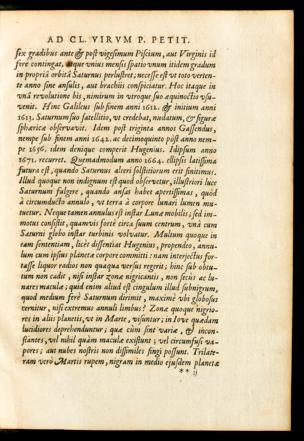 AD CL. VIRVM P. PETIT.
sex gradibus ante & post vigesimum Piscium, aut Virginis id
fere contingat, atque vnius mensis spatio vnum itidem gradum
in propriâ orbitâ Saturnus perlustret; necesse est vt toto verten-
te anno sine ansulis, aut brachiis conspiciatur. Hoc itaque in
vnâ revolutione bis, nimirum in vtroque suo æquinoctio vsu-
venit. Hinc Galileus sub finem anni 1612. & initium anni
1613. Saturnum suo satellitio, vt credebat, nudatum, & figuræ
sphæricæ observavit. Idem post triginta annos Gassendus,
nempe sub finem anni 1642. ac decimoquinto pòst anno nem-
pe 1656. idem denique comperit Hugenius. Idipsum anno
1671. recurret. Quemadmodum anno 1664. ellipsis latissima
futura est, quando Saturnus alteri solstitiorum erit finitimus.
Illud quoque non indignum est quod observetur, illustriori luce
Saturnum fulgere, quando ansas habet apertissimas, quòd
à circumducto annulo, vt terra à corpore lunari lumen mu-
tuetur. Neque tamen annulus est instar Lunæ mobilis; sed im-
motus consistit, quamvis fortè circa suum centrum, vnà cum
Saturni globo instar turbinis volvatur. Multum quoque in
eam sententiam, licèt dissentiat Hugenius, propendeo, annu-
lum cum ipsius planetæ corpore committi: nam interjectus for-
tasse liquor radios non quaqua versus regerit; hinc sub obtu-
tum non cadit, nisi instar zonæ nigricantis, non secùs ac lu-
nares maculæ; quid enim aliud est cingulum illud subnigrum,
quod medium ferè Saturnum dirimit, maximè vbi globosus
cernitur, nisi extremus annuli limbus? Zonæ quoque nigrio-
res in aliis planetis, vt in Marte, visuntur; in Iove quædam
lucidiores deprehenduntur; quæ cùm sint variæ, & incon-
stantes, vel nihil quàm maculæ existunt; vel circumfusi va-
pores; aut nubes nostris non dissimiles fingi possunt. Trilate-
ram verò Martis rupem, nigram in medio ejusdem planetæ
** ij